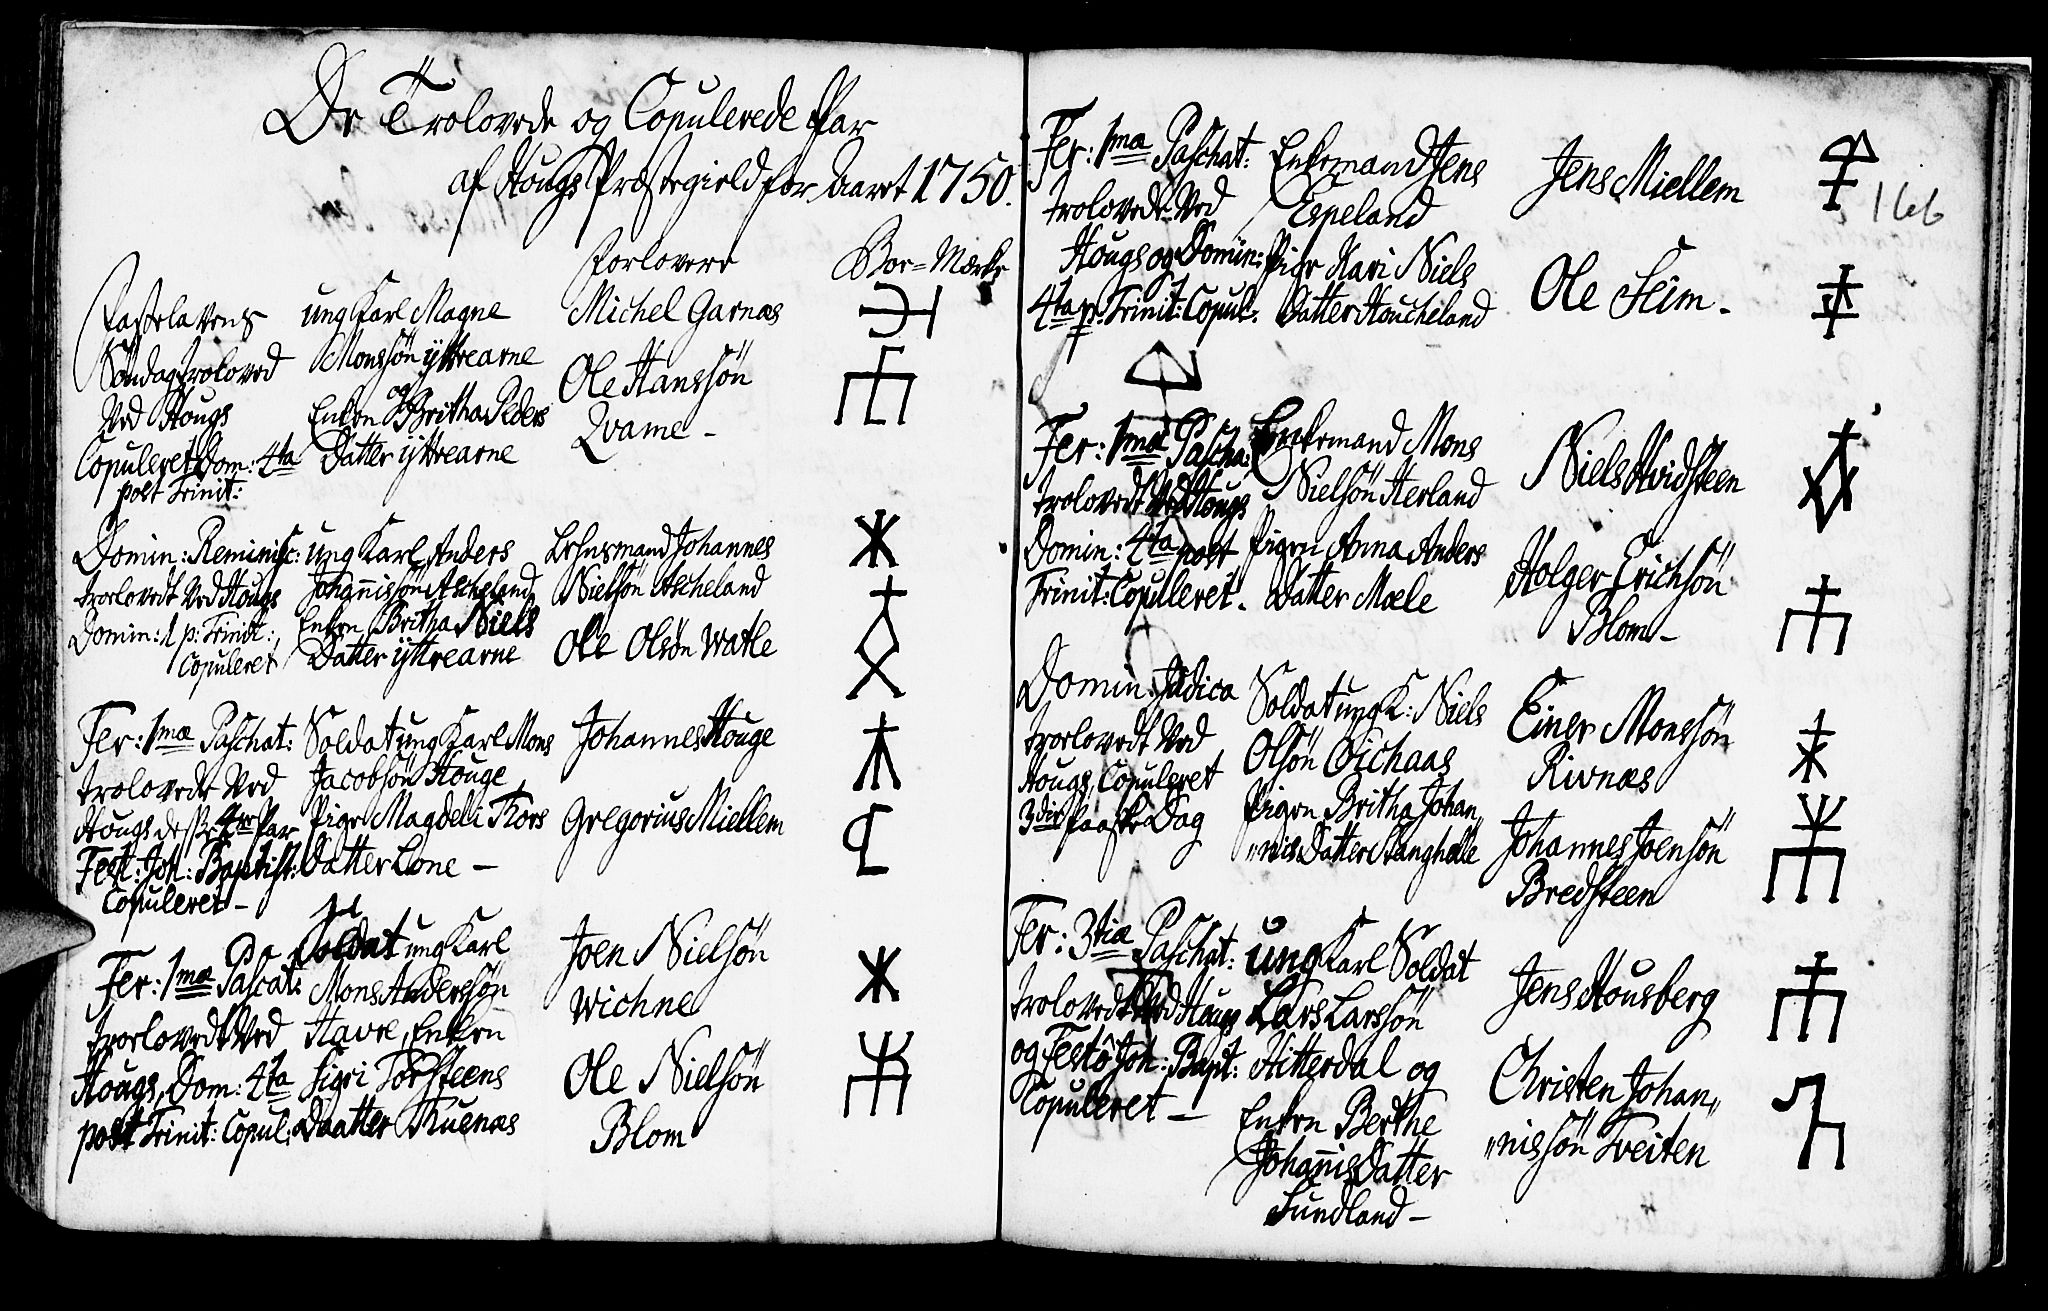 De Trolovede og Copulerede Par
af Hougs Præstegield for Aaret 1750.
Forlovere
Boe=Mærke
Fastelavens
Søndag troloved
Ved Hougs
Copuleret Dom: 4ta
post Trinit:
ung Karl Magne
Monssön ÿttrearne
og
Enken Britha Peders
Datter ÿttrearne
Michel Garnæs
Ole Hanssön
Qvame -
Domin: Reminisc:
trolovedt Ved Hougs
Domin: 1 p: Trinit:
Copuleret
ung Karl Anders
Johannissön Ascheland
Enken Britha Niels
Datter ÿttrearne
Lehnsmand Johannes
Nielsön Ascheland
Ole Olsön Watle
Fer: 1mæ Paschat:
trolovede Ved
Hougs desse 4re Par
Fest: Joh: Baptist:
Copuleret -
Soldat ung Karl Mons
Jacobsön Houge
Pige Magdeli Thors
Datter Lone -
Johannes Houge
Gregorius Miellem
Fer: 1mæ Pascat:
trolovedt Ved
Hougs, Dom: 4ta
post Trinit: Copul:
Soldat ung Karl
Mons Anderssön
Havre, Enken
Sigri Torsteens
Daatter Thuenæs
Joen Nielsön
Wichne
Ole Nielsön
Blom
166
Fer: 1mæ Paschat:
trolovede Ved
Hougs og Domin:
4ta p: Trinit: Copul:
Enkemand Jens
Espeland
Pige Kari Niels
Datter Houcheland
Jens Miellem
Ole Seim -
Fer: 1mæ Pascha:
trolovedt Ved Hougs
Domin: 4ta post
Trinit: Copuleret -
Enkemand Mons
Nielsön Herland
Pigen Anna Anders
Datter Mæle
Niels Hvidsteen
Holger Erichsön
Blom -
Domin: Judica
trolovedt Ved
Hougs, Copuleret
3die Paaske Dag
Soldat ung K: Niels
Olsön Oichaas
Pigen Britha Johan„
„nis Datter Stanghelle
Einer Monssön
Rivenæs
Johannes Joensön
Bredsteen
Fer: 3tiæ Paschat:
trolovedt Ved Haugs
og Festô Joh: Bapt:
Copuleret -
ung Karl Soldat
Lars Larssön
Hitterdal og
Enken Berthe
Johannis Datter
Sundland -
Jens Housberg
Christen Johan„
„nissön Tveiten